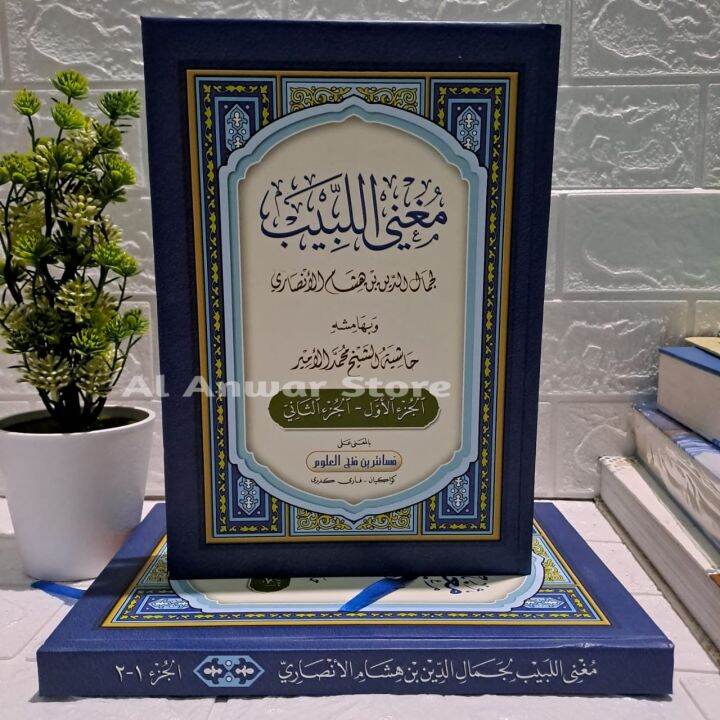 مُغْنِي اللَّبِيْب
لجمال الدين بن هشام الأنصاري
وبهامشه
حاشية الشيخ محمد الأمير
Al Anwar Store
الجزء الأول - الجزء الثاني
بالمعنى على
فسانترين فتح العلوم
كواكيان - فاري كديري
مُغْنِي اللَّبِيْب لِجَمَالِ الدِّيْن بْن هِشَام الأَنْصَارِيّ
الجُزْءُ ١-٢